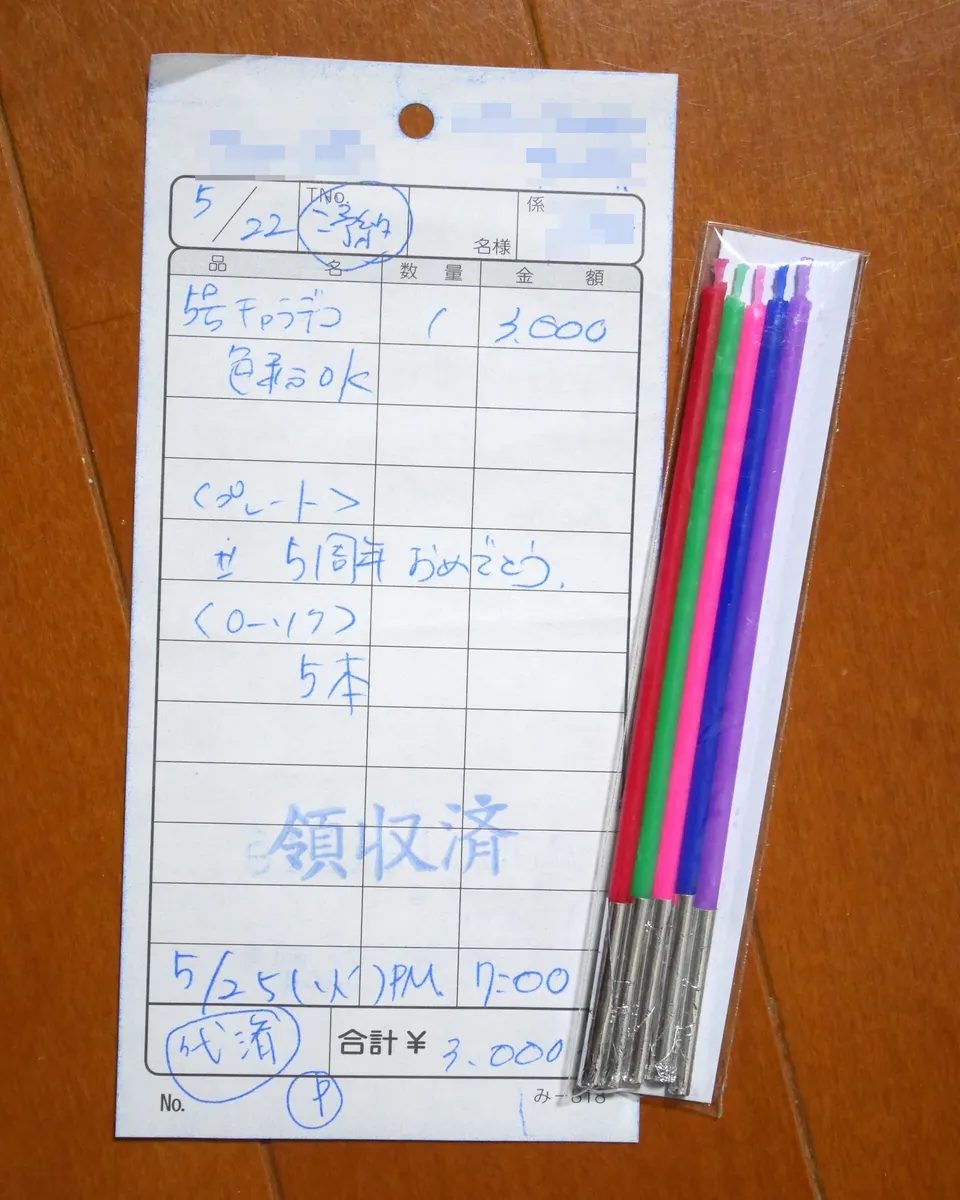 5/22 TNo. ご予約 名様 係
品 名 数 量 金 額
5号チョコデコ 1 3.000
OK
<プレート>
51周年 おめでとう.
<ローソク>
5本
領収済
5/25(火)PM 7:00
代済 合計¥ 3.000
No. P み-818